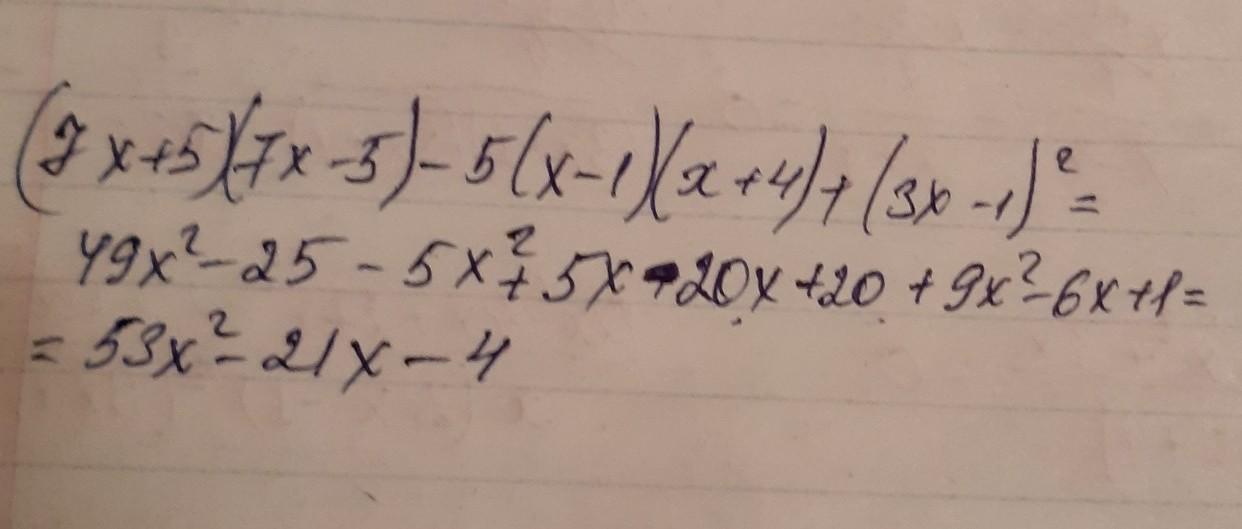 (7x+5)(7x-5)-5(x-1)(x+4)+(3x-1)²=
49x²-25-5x²+5x-20x+20+9x²-6x+1=
=53x²-21x-4